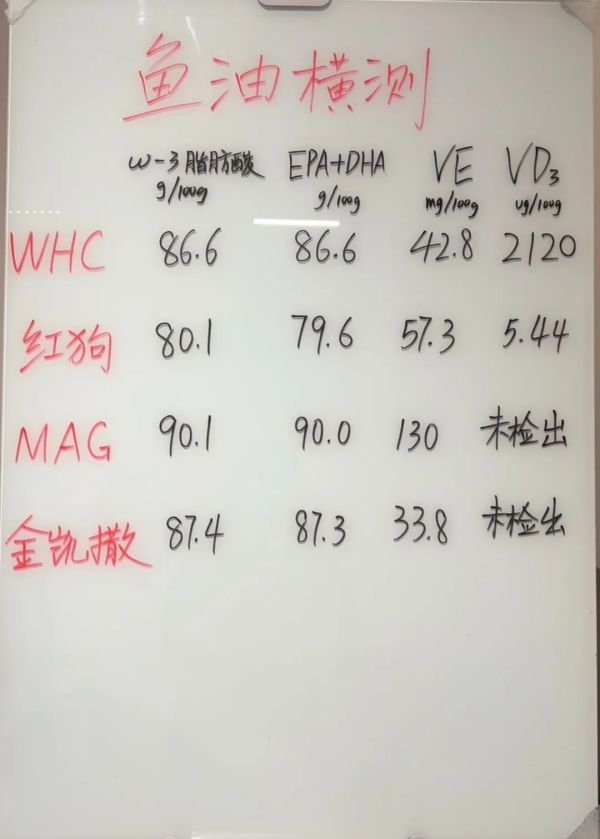 鱼油横测
ω-3脂肪酸 EPA+DHA VE VD₃
g/100g g/100g mg/100g ug/100g
WHC 86.6 86.6 42.8 2120
红狗 80.1 79.6 57.3 5.44
MAG 90.1 90.0 130 未检出
金凯撒 87.4 87.3 33.8 未检出